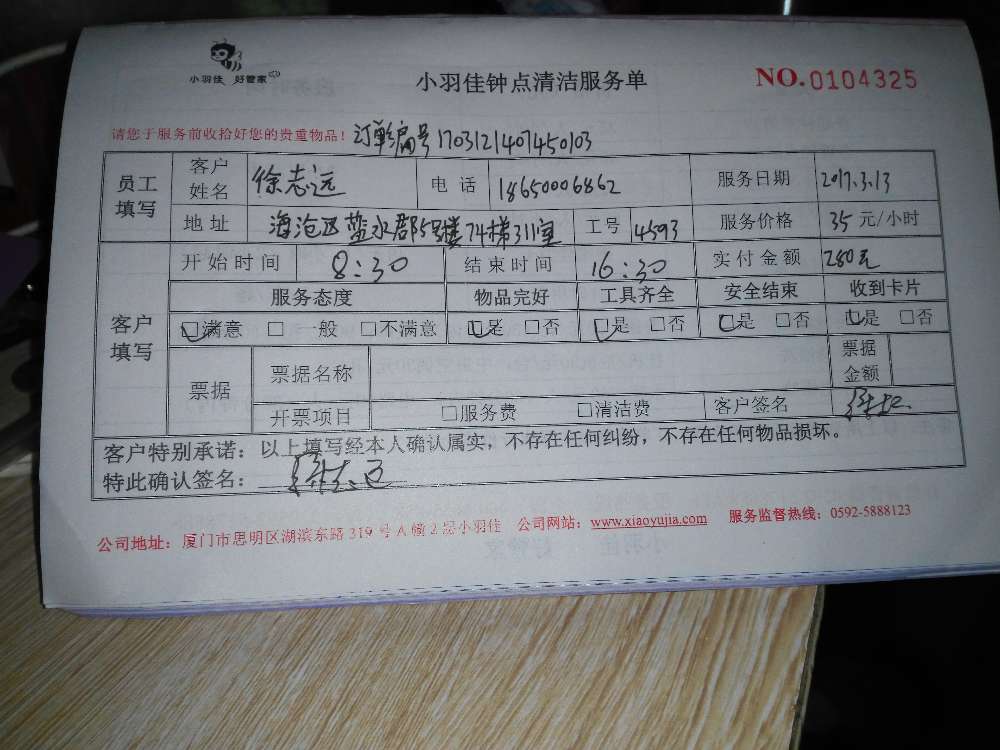 小羽佳 好管家
小羽佳钟点清洁服务单
NO.0104325
请您于服务前收拾好您的贵重物品！ 订单编号1703121407450103
员工填写 客户姓名 徐志远 电话 18650006862 服务日期 2017.3.13
地址 海沧区蓝水郡5号楼74梯311室 工号 4593 服务价格 35元/小时
客户填写 开始时间 8:30 结束时间 16:30 实付金额 280元
服务态度 物品完好 工具齐全 安全结束 收到卡片
☑满意 □一般 □不满意 ☑是 □否 ☑是 □否 ☑是 □否 ☑是 □否
票据 票据名称 票据金额
开票项目 □服务费 □清洁费 客户签名
客户特别承诺：以上填写经本人确认属实，不存在任何纠纷，不存在任何物品损坏。
特此确认签名：
公司地址：厦门市思明区湖滨东路319号A幢2层小羽佳 公司网站：www.xiaoyujia.com 服务监督热线：0592-5888123